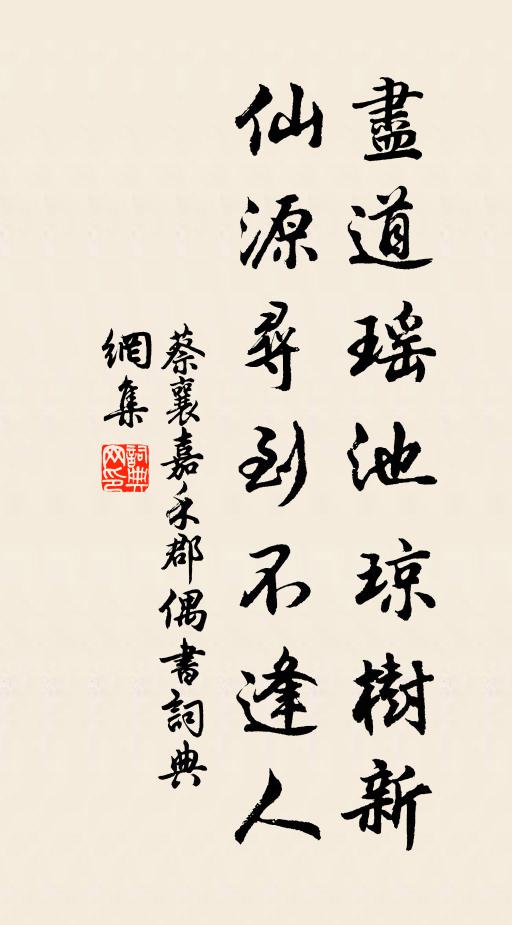 盡道瑤池瓊樹新
仙源尋到不逢人
蔡襄嘉禾郡偶書詞典
網集
詞典
网印